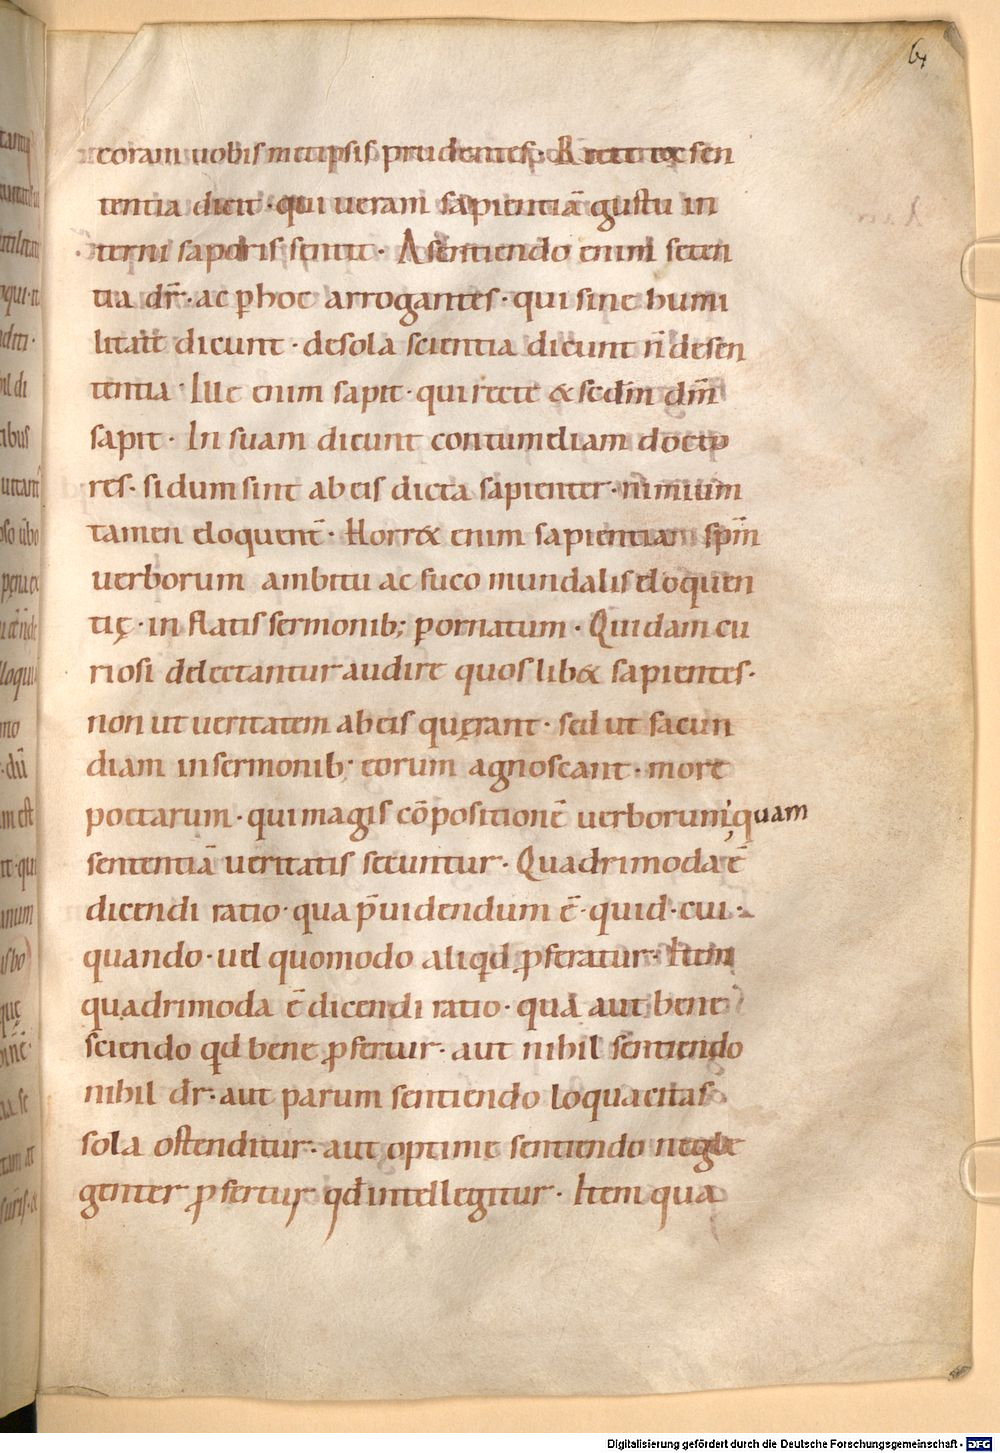 64
coram uobis metipsis prudentes· Recte ex sen
tentia dicit · qui ueram sapientiā gustu in
terni saporis sentit · A sentiendo enim senten
tia dr̄ · ac ꝑ hoc arrogantes · qui sine humi
litate dicunt · de sola scientia dicunt n̄ de sen
tentia · Ille enim sapit · qui recte & scd̄m dm̄
sapit · In suam dicunt contumeliam docto
res · si dum sint ab eis dicta sapienter · nimium
tamen eloquent̄ · Horr& enim sapientiam spm̄
uerborum ambitu ac fuco mundalis eloquen
tię · inflatis sermonib; ꝑornatum · Quidam cu
riosi delectantur audire quoslib& sapientes ·
non ut ueritatem ab eis quęrant · sed ut facun
diam in sermonib; eorum agnoscant · more
poetarum · qui magis cōpositionē uerborum; quam
sententiā ueritatis secuntur · Quadrimoda ē
dicendi ratio · qua p̄uidendum ē · quid · cui ·
quando · uel quomodo aliqd ꝓferatur · Item
quadrimoda ē dicendi ratio · qua aut bene
sciendo qd bene ꝓfertur · aut nihil sentiendo
nihil dr̄ · aut parum sentiendo loquacitas
sola ostenditur · aut optime sentiendo negle
genter ꝓfertur qđ intellegitur · Item qua
Digitalisierung gefördert durch die Deutsche Forschungsgemeinschaft - DFG